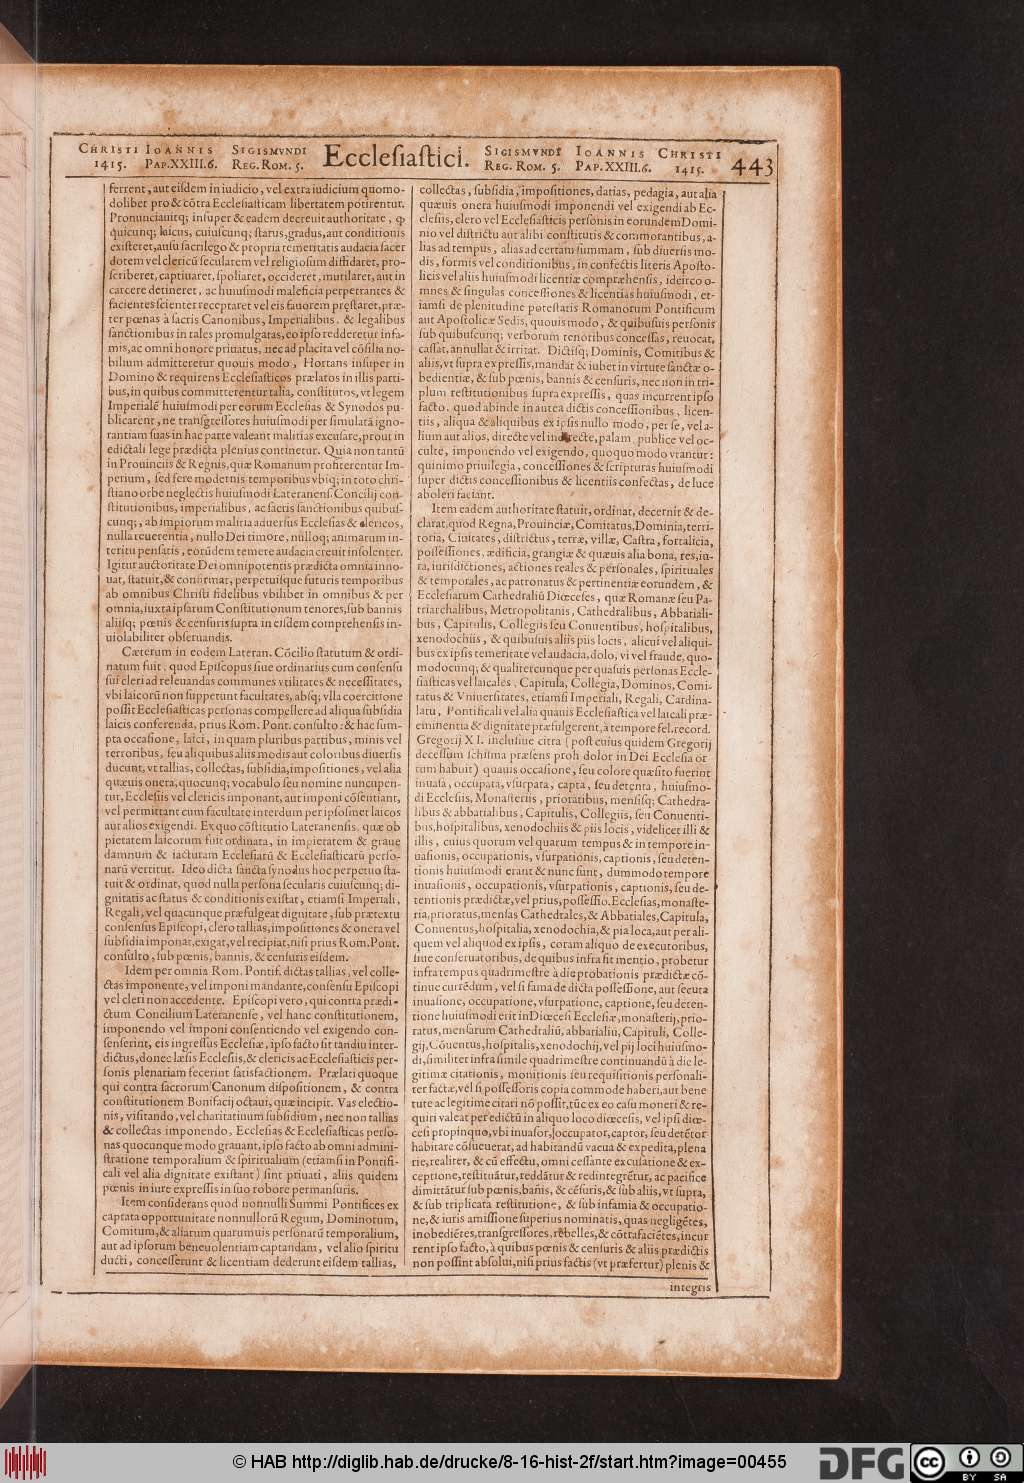 CHRISTI IOANNIS SIGISMVNDI Ecclesiastici. SIGISMVNDI IOANNIS CHRISTI 443
1415. PAP.XXIII.6. REG.ROM. 5. REG. ROM. 5. PAP.XXIII.6. 1415.
ferrent, aut eisdem in iudicio, vel extra iudicium quomo-
dolibet pro & cõtra Ecclesiasticam libertatem potirentur.
Pronunciauitq; insuper & eadem decreuit authoritate, ꝙ
quicunq; laicus, cuiuscunq; status, gradus, aut conditionis
existeret, ausu sacrilego & propria temeritatis audacia sacer
dotem vel clericũ secularem vel religiosum diffidaret, pro-
scriberet, captiuaret, spoliaret, occideret, mutilaret, aut in
carcere detineret, ac huiusmodi maleficia perpetrantes &
facientes scienter receptaret vel eis fauorem prestaret, præ-
ter pœnas à sacris Canonibus, Imperialibus. & legalibus
sanctionibus in tales promulgatas, eo ipso redderetur infa-
mis, ac omni honore priuatus, nec ad placita vel cõsilia no-
bilium admitteretur quouis modo, Hortans insuper in
Domino & requirens Ecclesiasticos prælatos in illis parti-
bus, in quibus committerentur talia, constitutos, vt legem
Imperialē huiusmodi per eorum Ecclesias & Synodos pu-
blicarent, ne transgressores huiusmodi per simulatã igno-
rantiam suas in hac parte valeant malitias excusare, prout in
edictali lege prædicta plenius continetur. Quia non tantũ
in Prouinciis & Regnis, quæ Romanum profiterentur Im-
perium, sed fere modernis temporibus vbiq; in toto chri-
stiano orbe neglectis huiusmodi Lateranens. Concilij con-
stitutionibus, imperialibus, ac sactis sanctionibus quibus-
cunq;, ab impiorum malitia aduersus Ecclesias & clericos,
nulla reuerentia, nullo Dei timore, nulloq; animarum in-
teritu pensatis, eorũdem temere audacia creuit insolenter.
Igitur auctoritate Dei omnipotentis prædicta omnia inno-
uat, statuit, & confirmat, perpetuisque futuris temporibus
ab omnibus Christi fidelibus vbilibet in omnibus & per
omnia, iuxta ipsarum Constitutionum tenores, sub bannis
aliisq; pœnis & censuris supra in eisdem comprehensis in-
uiolabiliter obseruandis.
Cæterum in eodem Lateran. Cõcilio statutum & ordi-
natum fuit, quod Episcopus siue ordinarius cum consensu
sui cleri ad releuandas communes vtilitates & necessitates,
vbi laicorũ non suppetunt facultates, absq; vlla coercitione
possit Ecclesiasticas personas compellere ad aliqua subsidia
laicis conferenda, prius Rom. Pont. consulto: & hac sum-
pta occasione, laici, in quam pluribus partibus, minis vel
terroribus, seu aliquibus aliis modis aut coloribus diuersis
ducunt, vt tallias, collectas, subsidia, impositiones, vel alia
quæuis onera, quocunq; vocabulo seu nomine nuncupen-
tur, Ecclesiis vel clericis imponant, aut imponi cõsentiant,
vel permittant cum facultate interdum per ipsosmet laicos
aut alios exigendi. Ex quo cõstitutio Lateranensis, quæ ob
pietatem laicorum fuit ordinata, in impietatem & graue
damnum & iacturam Ecclesiarũ & Ecclesiasticarũ perso-
narũ vertitur. Ideo dicta sancta synodus hoc perpetuo sta-
tuit & ordinat, quod nulla persona secularis cuiuscunq; di-
gnitatis ac status & conditionis existat, etiamsi Imperiali,
Regali, vel quacunque præfulgeat dignitate, sub prætextu
consensus Episcopi, clero tallias, impositiones & onera vel
subsidia imponat, exigat, vel recipiat, nisi prius Rom. Pont.
consulto, sub pœnis, bannis, & censuris eisdem.
Idem per omnia Rom. Pontif. dictas tallias, vel colle-
ctas imponente, vel imponi mandante, consensu Episcopi
vel cleri non accedente. Episcopi vero, qui contra prædi-
ctum Concilium Lateranense, vel hanc constitutionem,
imponendo vel imponi consentiendo vel exigendo con-
senserint, eis ingressus Ecclesiæ, ipso facto sit tandiu inter-
dictus, donec læsis Ecclesiis, & clericis ac Ecclesiasticis per-
sonis plenariam fecerint satisfactionem. Prælati quoque
qui contra sacrorum Canonum dispositionem, & contra
constitutionem Bonifacij octaui, quæ incipit. Vas electio-
nis, visitando, vel charitatiuum subsidium, nec non tallias
& collectas imponendo, Ecclesias & Ecclesiasticas perso-
nas quocunque modo grauant, ipso facto ab omni admini-
stratione temporalium & spiritualium (etiamsi in Pontifi-
cali vel alia dignitate existant) sint priuati, aliis quidem
pœnis in iure expressis in suo robore permansuris.
Item considerans quod nonnulli Summi Pontifices ex
captata opportunitate nonnullorũ Regum, Dominorum,
Comitum, & aliarum quarumuis personarũ temporalium,
aut ad ipsorum beneuolentiam captandam, vel alio spiritu
ducti, concesserunt & licentiam dederunt eisdem tallias,
collectas, subsidia, impositiones, datias, pedagia, aut alia
quæuis onera huiusmodi imponendi vel exigendi ab Ec-
clesiis, clero vel Ecclesiasticis personis in eorundem Domi-
nio vel districtu aut alibi constitutis & commorantibus, a-
lias ad tempus, alias ad certam summam, sub diuersis mo-
dis, formis vel conditionibus, in confectis literis Aposto-
licis vel aliis huiusmodi licentiæ compræhensis, idcirco o-
mnes & singulas concessiones & licentias huiusmodi, et-
iamsi de plenitudine potestatis Romanorum Pontificum
aut Apostolicæ Sedis, quouis modo, & quibusuis personis
sub quibuscunq; verborum tenoribus concessas, reuocat,
cassat, annullat & irritat. Dictisq; Dominis, Comitibus &
aliis, vt supra expressis, mandat & iubet in virtute sanctæ o-
bedientiæ, & sub pœnis, bannis & censuris, nec non in tri-
plum restitutionibus supra expressis, quas incurrent ipso
facto, quod abinde in antea dictis concessionibus, licen-
tiis, aliqua & aliquibus ex ipsis nullo modo, per se, vel a-
lium aut alios, directe vel indirecte, palam, publice vel oc-
culte, imponendo vel exigendo, quoquo modo vtantur:
quinimo priuilegia, concessiones & scripturas huiusmodi
super dictis concessionibus & licentiis confectas, de luce
aboleri faciant.
Item eadem authoritate statuit, ordinat, decernit & de-
clarat, quod Regna, Prouinciæ, Comitatus, Dominia, terri-
toria, Ciuitates, districtus, terræ, villæ, Castra, fortalicia,
possessiones, ædificia, grangiæ & quæuis alia bona, res, iu-
ra, iurisdictiones, actiones reales & personales, spirituales
& temporales, ac patronatus & pertinentiæ eorundem, &
Ecclesiarum Cathedraliũ Diœceses, quæ Romanæ seu Pa-
triarchalibus, Metropolitanis, Cathedralibus, Abbatiali-
bus, Capitulis, Collegiis seu Conuentibus, hospitalibus,
xenodochiis, & quibusuis aliis piis locis, alicui vel aliqui-
bus ex ipsis temeritate vel audacia, dolo, vi vel fraude, quo-
modocunq; & qualitercunque per quasuis personas Eccle-
siasticas vel laicales, Capitula, Collegia, Dominos, Comi-
tatus & Vniuersitates, etiamsi Imperiali, Regali, Cardina-
latu, Pontificali vel alia quauis Ecclesiastica vel laicali præ-
eminentia & dignitate præfulgerent, à tempore fel. record.
Gregorij XI. inclusiue citra (post cuius quidem Gregorij
decessum schisma præsens proh dolor in Dei Ecclesia or
tum habuit) quauis occasione, seu colore quæsito fuerint
inuasa, occupata, vsurpata, capta, seu detenta, huiusmo-
di Ecclesiis, Monasteriis, prioratibus, mensisq; Cathedra-
libus & abbatialibus, Capitulis, Collegiis, seu Conuenti-
bus, hospitalibus, xenodochiis & piis locis, videlicet illi &
illis, cuius quorum vel quarum tempus & in tempore in-
uasionis, occupationis, vsurpationis, captionis, seu deten-
tionis huiusmodi erant & nunc sunt, dummodo tempore
inuasionis, occupationis, vsurpationis, captionis, seu de-
tentionis prædictæ, vel prius, possessio. Ecclesias, monaste-
ria, prioratus, mensas Cathedrales, & Abbatiales, Capitula,
Conuentus, hospitalia, xenodochia, & pia loca, aut per ali-
quem vel aliquod ex ipsis, coram aliquo de executoribus,
siue conseruatoribus, de quibus infra fit mentio, probetur
infra tempus quadrimestre à die probationis prædictæ cõ-
tinue currēdum, vel si fama de dicta possessione, aut secuta
inuasione, occupatione, vsurpatione, captione, seu deten-
tione huiusmodi erit in Diœcesi Ecclesiæ, monasterij, prio-
ratus, mensarum Cathedraliũ, abbatialiũ, Capituli, Colle-
gij, Cõuentus, hospitalis, xenodochij, vel pij loci huiusmo-
di, similiter infra simile quadrimestre continuandũ à die le-
gitimæ citationis, monitionis seu requisitionis personali-
ter factæ, vel si possessoris copia commode haberi, aut bene
tute ac legitime citari nõ possit, tũc ex eo casu moneri & re-
quiri valeat per edictũ in aliquo loco diœcesis, vel ipsi diœ-
cesi propinquo, vbi inuasor, occupator, captor, seu detētor
habitare cõsueuerat, ad habitandũ vacua & expedita, plena
rie, realiter, & cũ effectu, omni cessante excusatione & ex-
ceptione, restituãtur, reddãtur & redintegrētur, ac pacifice
dimittãtur sub pœnis, bañis, & cēsuris, & sub aliis, vt supra,
& sub triplicata restitutione, & sub infamia & occupatio-
ne, & iuris amissione superius nominatis, quas negligētes,
inobediētes, transgressores, rebelles, & cõtrafaciētes, incur
rent ipso facto, à quibus pœnis & censuris & aliis prædictis
non possint absolui, nisi prius factis (vt præfertur) plenis &
integris
© HAB http://diglib.hab.de/drucke/8-16-hist-2f/start.htm?image=00455
DFG
cc BY SA